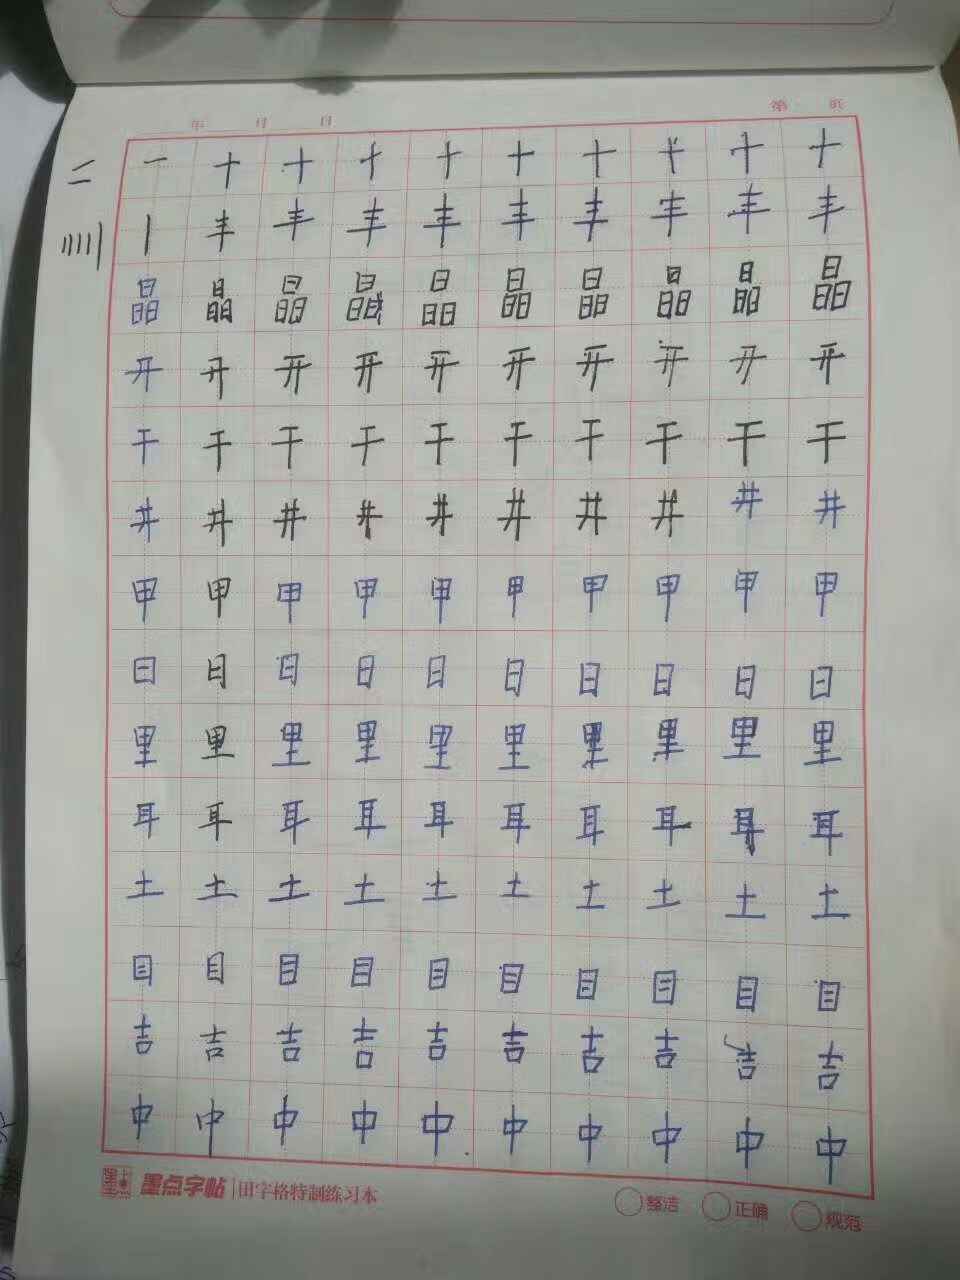 年 月 日 第 页
二 一 十 十 十 十 十 十 十 十 十
丨 丰 丰 丰 丰 丰 丰 丰 丰 丰
晶 晶 晶 晶 晶 晶 晶 晶 晶 晶
开 开 开 开 开 开 开 开 开 开
干 干 干 干 干 干 干 干 干 干
井 井 井 井 井 井 井 井 井 井
甲 甲 甲 甲 甲 甲 甲 甲 甲 甲
日 日 日 日 日 日 日 日 日 日
里 里 里 里 里 里 里 里 里 里
耳 耳 耳 耳 耳 耳 耳 耳 耳 耳
土 土 土 土 土 土 土 土 土 土
目 目 目 目 目 目 目 目 目 目
吉 吉 吉 吉 吉 吉 吉 吉 吉 吉
中 中 中 中 中 中 中 中 中 中
墨点 墨点字帖 田字格特制练习本 整洁 正确 规范